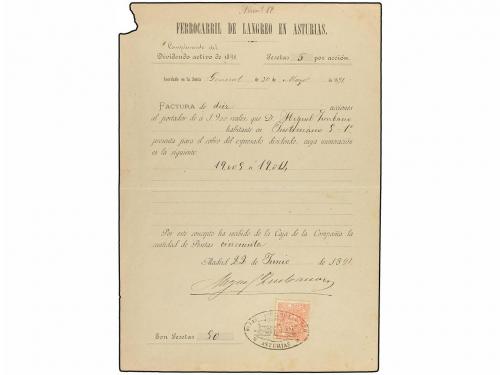 Núm. 11
FERROCARRIL DE LANGREO EN ASTURIAS.
Complemento del
Dividendo activo de 1891 Pesetas 5 por acción.
Acordado en la Junta General de 30 de Mayo de 1891
FACTURA de diez acciones
al portador de á 1.900 reales que D. Miguel
habitante en 5 1º
presenta para el cobro del expresado dividendo, cuya numeración
es la siguiente:
19.005 á 19.014
Por este concepto ha recibido de la Caja de la Compañía la
cantidad de Pesetas cincuenta
Madrid 22 de Junio de 1891
Son Pesetas 50
ASTURIAS